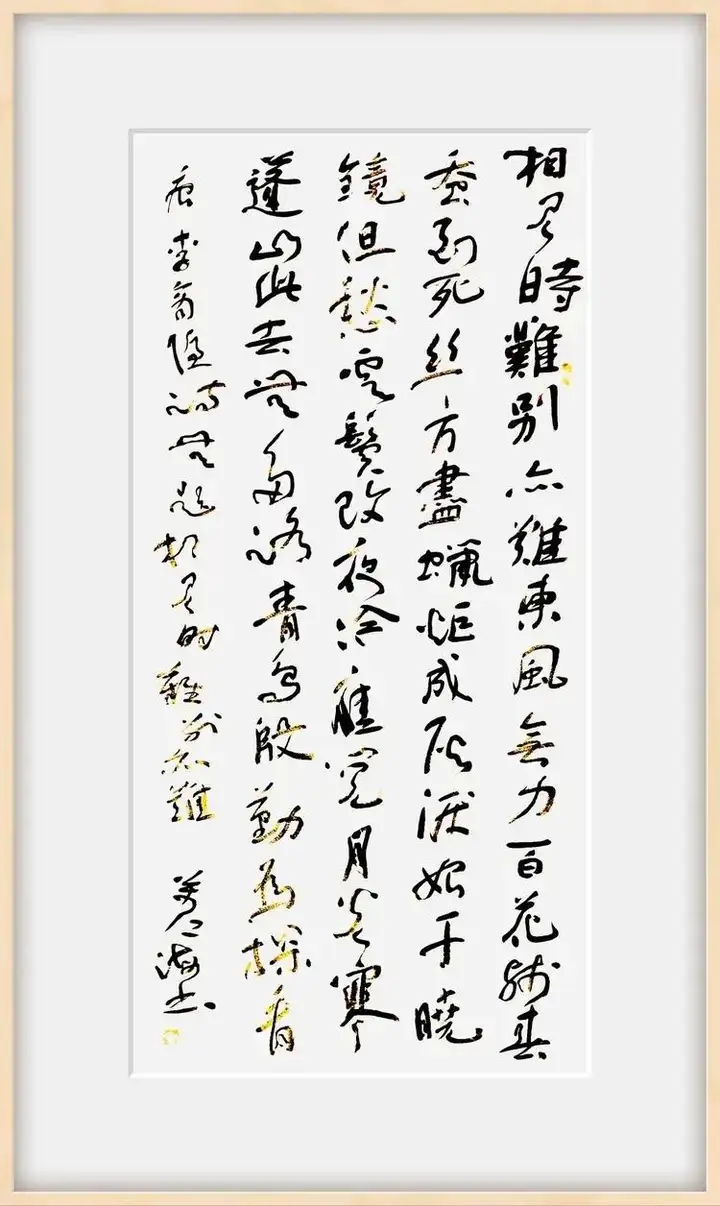 相見時難別亦難東風無力百花殘春
蚕到死丝方盡蠟炬成灰淚始干曉
鏡但愁雲鬢改夜吟應覺月光寒
蓬山此去無多路青鳥殷勤為探看
唐李商隱詩無題相見時難別亦難 海书